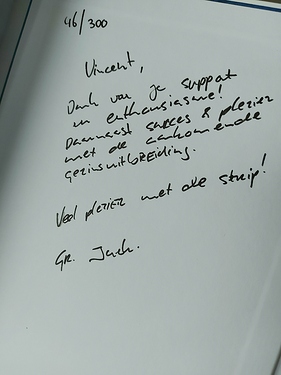 46/300
Vincent,
Dank voor je support
en enthousiasme!
Daarnaast succes & plezier
met de aankomende
gezinsuitbreiding.
Veel plezier met de strip!
Gr.